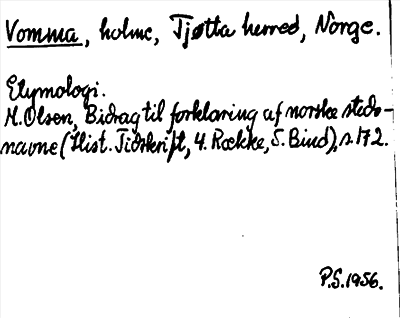 Vomma, holme, Tjøtta herred, Norge.
Etymologi.
M. Olsen, Bidrag til forklaring af norske steds-
navne (Hist. Tidskrift, 4. Række, 5. Bind), s. 172.
P.S. 1956.